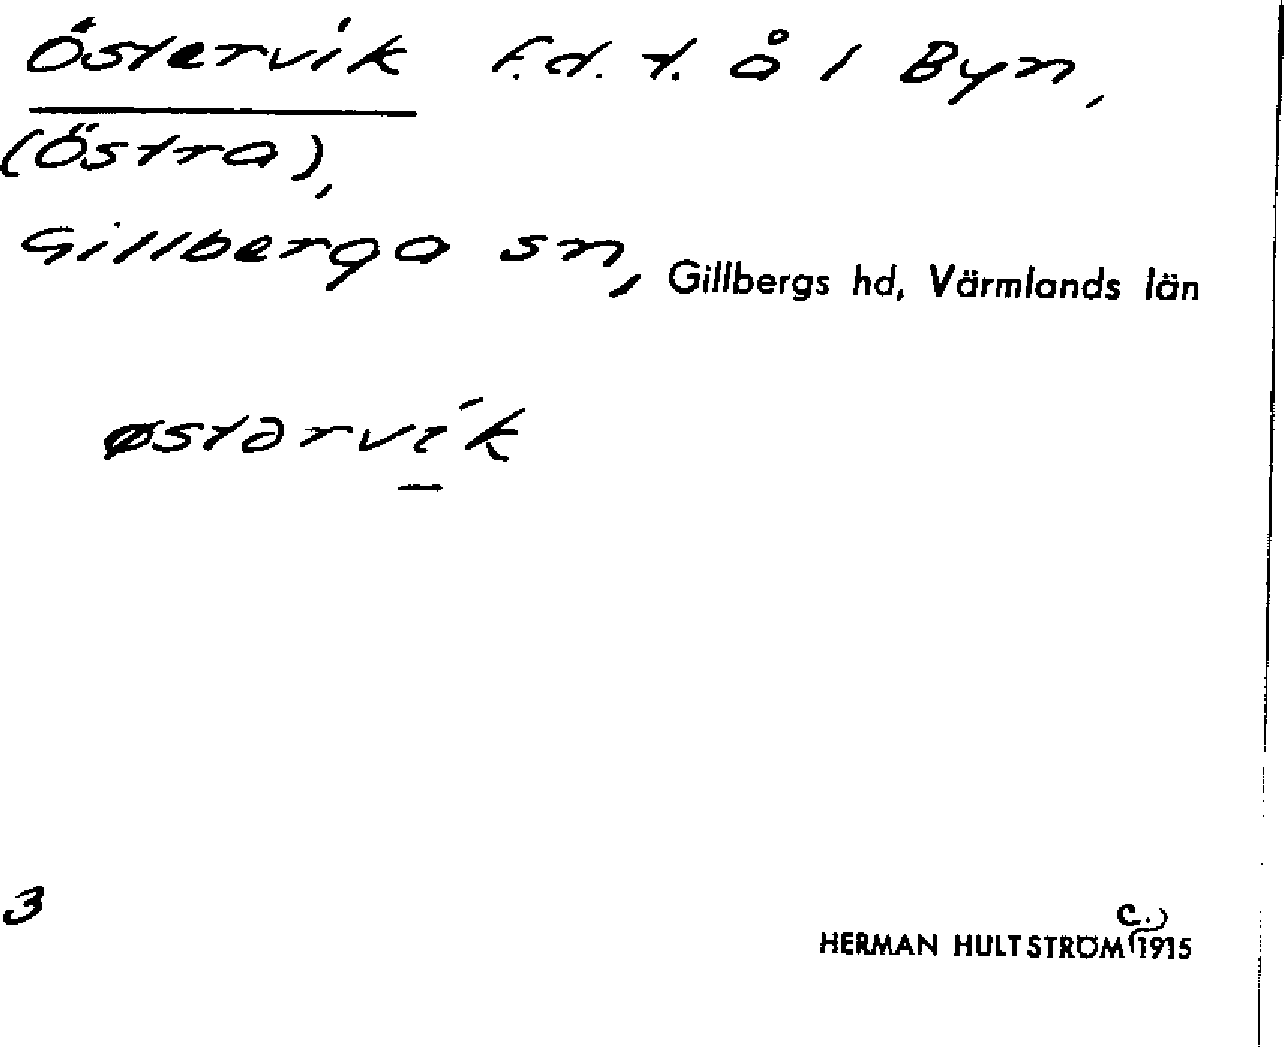 Östervik f.d. t. å / Byn,
(Östra),
Gillberga sn, Gillbergs hd, Värmlands län
østərvik
3
HERMAN HULTSTRÖM c. 1915